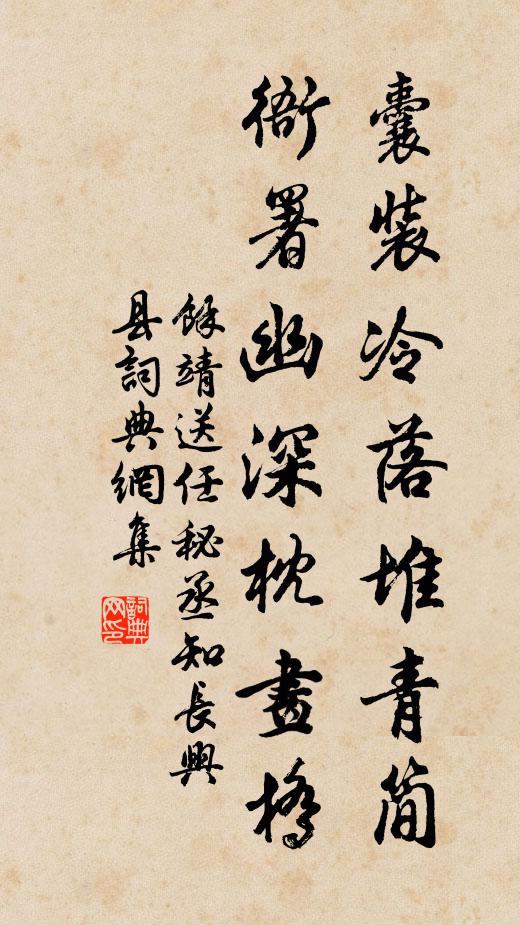 囊裝冷落堆青簡
衙署幽深枕畫橋
餘靖送任秘丞知長興
县詞典網集
詞典
网印